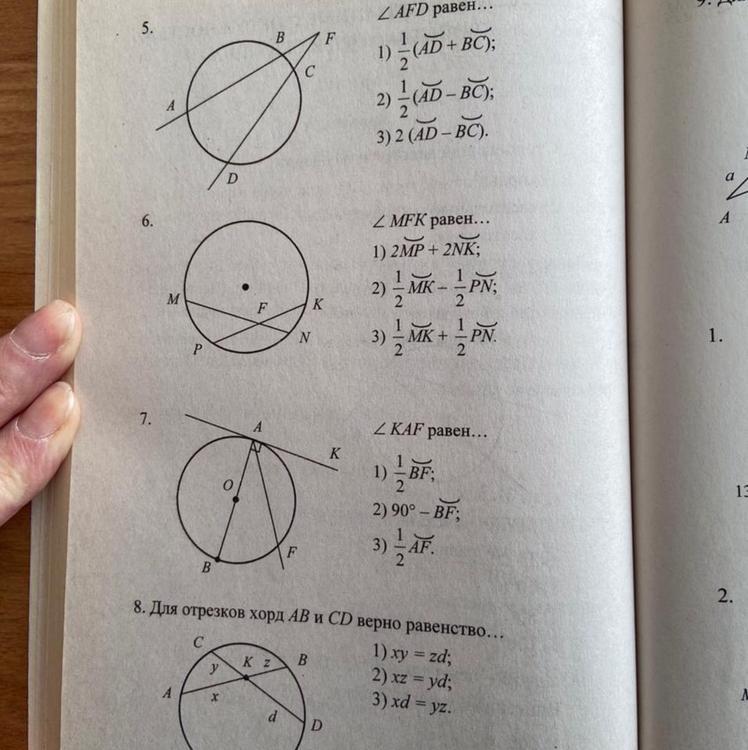 5.
∠ AFD равен…
B
F
C
A
D
1) 1/2 (AD + BC);
2) 1/2 (AD – BC);
3) 2 (AD – BC).
6.
∠ MFK равен…
M
F
K
N
P
1) 2MP + 2NK;
2) 1/2 MK – 1/2 PN;
3) 1/2 MK + 1/2 PN.
7.
∠ KAF равен…
A
K
O
F
B
1) 1/2 BF;
2) 90° – BF;
3) 1/2 AF.
8. Для отрезков хорд AB и CD верно равенство…
C
K
z
B
y
A
x
d
D
1) xy = zd;
2) xz = yd;
3) xd = yz.
a
A
1.
13
2.